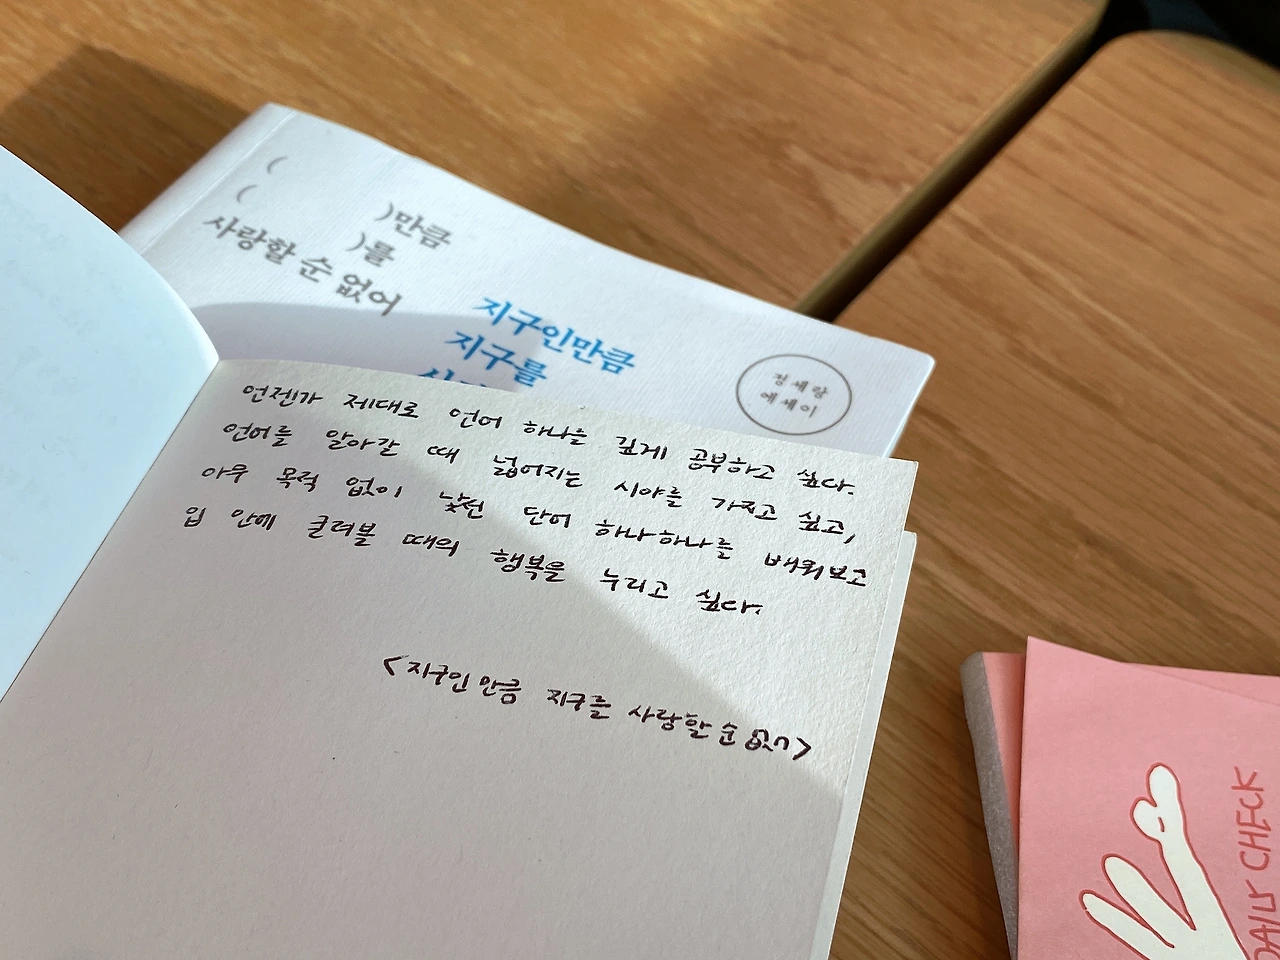 (
(          )만큼
)를
사랑할 순 없어
지구인만큼
지구를
정세랑
에세이
언젠가 제대로 언어 하나를 깊게 공부하고 싶다.
언어를 알아갈 때 넓어지는 시야를 가지고 싶고,
아무 목적 없이 낯선 단어 하나하나를 배워보고
입 안에 굴려볼 때의 행복을 누리고 싶다.
<지구인만큼 지구를 사랑할 순 없어>
DAILY CHECK